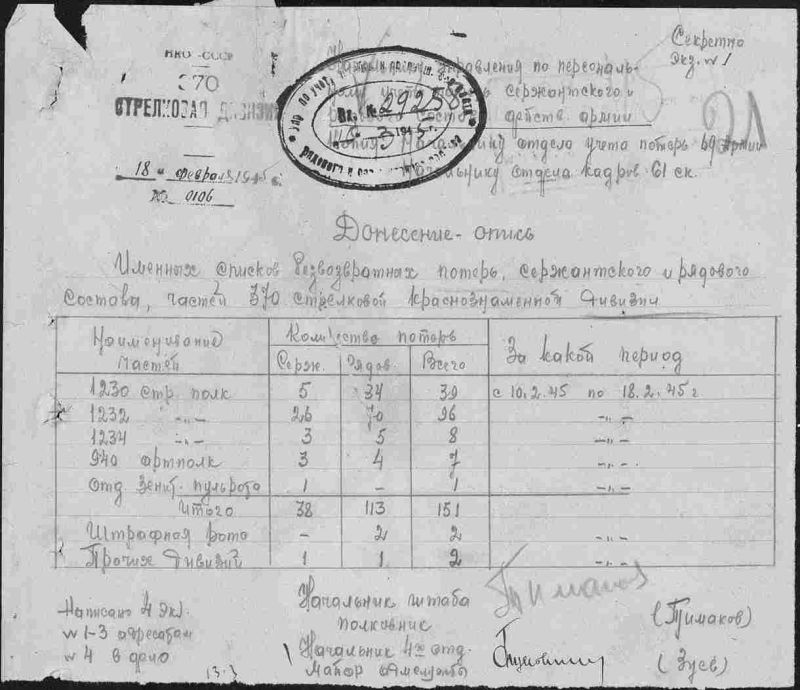 НКО-СССР
370
СТРЕЛКОВАЯ ДИВИЗИЯ
18 " февраля 1945 г.
№ 0106
Секретно
Экз. № 1
Управления по персональ-
сержантского и
действ. армии
Начальнику отдела учета потерь 69 Армии
Начальнику отдела кадров 61 ск.
Вх. № 29258
3 1945 г.
21
Донесение-опись
Именных списков безвозвратных потерь, сержантского и рядового
состава, частей 370 стрелковой Краснознаменной дивизии
Наименование частей Кол-чество потерь За какой период
Серж. Рядов. Всего
1230 стр. полк 5 34 39 с 10.2.45 по 18.2.45 г
1232 -"- 26 70 96 -"-
1234 -"- 3 5 8 -"-
940 артполк 3 4 7 -"-
Отд. Зенит. пульрота 1 - 1 -"-
Итого 38 113 151
Штрафная рота - 2 2 -"-
Прочих дивизий 1 1 2 -"-
Написано 4 экз.
№ 1-3 адресатам
№ 4 в дело
13.3
Начальник штаба
полковник
Тимаков
(Тимаков)
Начальник 4го отд.
майор
(Зуев)